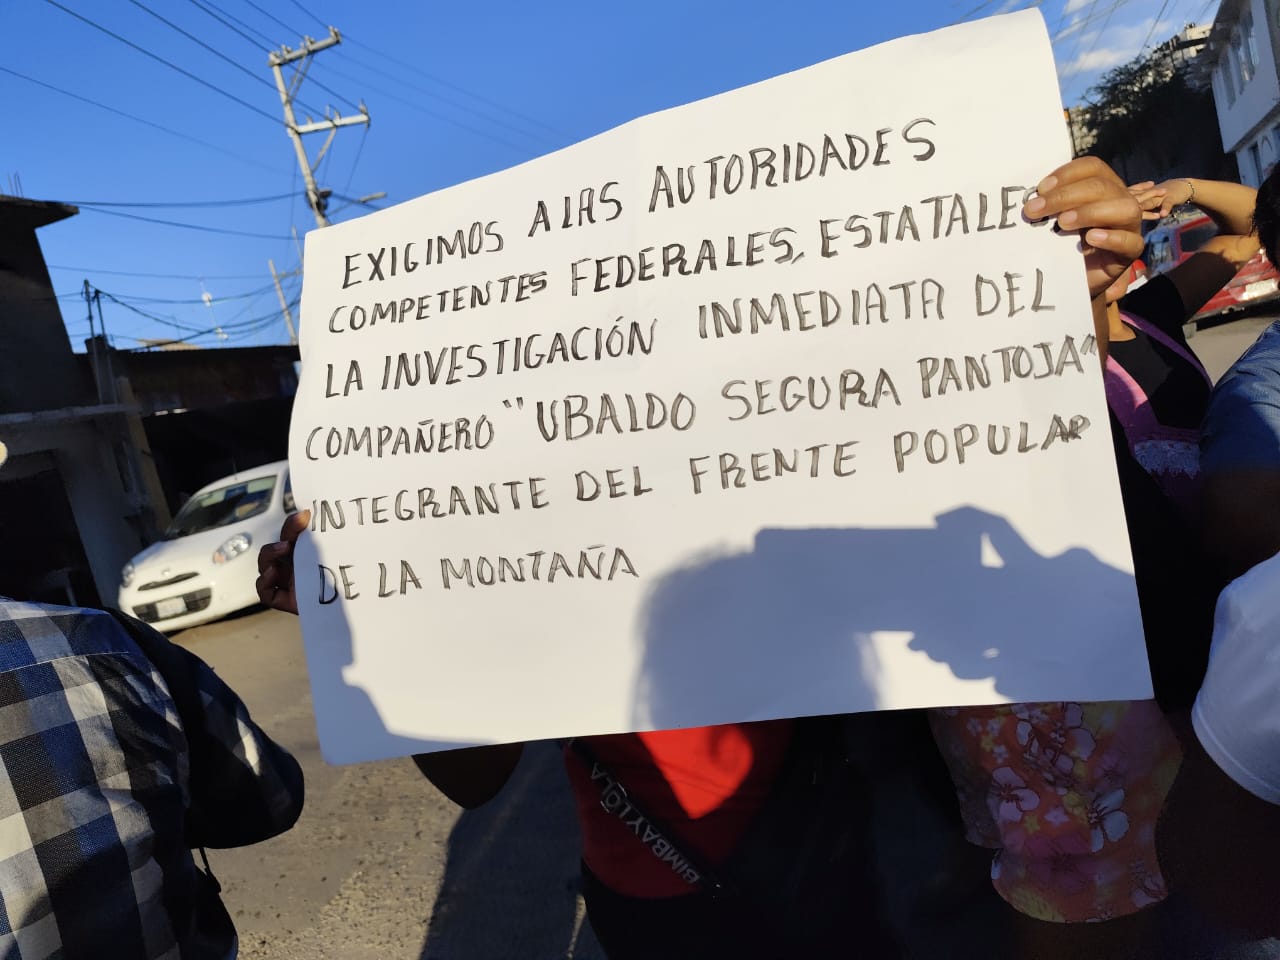 EXIGIMOS A LAS AUTORIDADES
COMPETENTES FEDERALES, ESTATALES
LA INVESTIGACIÓN INMEDIATA DEL
COMPAÑERO "UBALDO SEGURA PANTOJA"
INTEGRANTE DEL FRENTE POPULAR
DE LA MONTAÑA
BIMBA Y LOLA